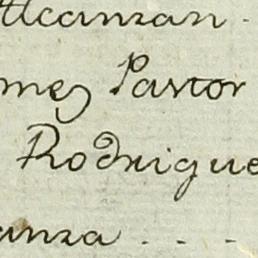 Alcanzan.
mez Pastor
Rodrigue
anza . . . -